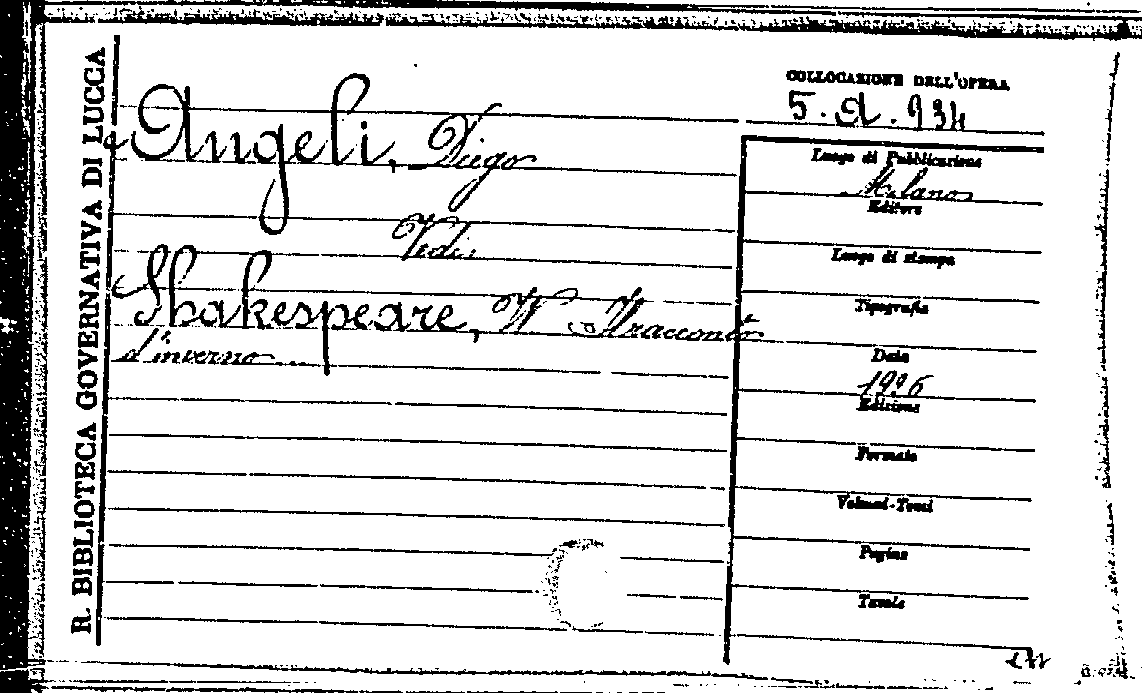 R. BIBLIOTECA GOVERNATIVA DI LUCCA
Angeli, Diego
Vedi:
Shakespeare, W Il racconto
d'inverno
COLLOCAZIONE DELL'OPERA
5. A. 934
Luogo di Pubblicazione
Milano
Editore
Luogo di stampa
Tipografia
Data
1926
Edizione
Formato
Volumi-Tomi
Pagine
Tavole